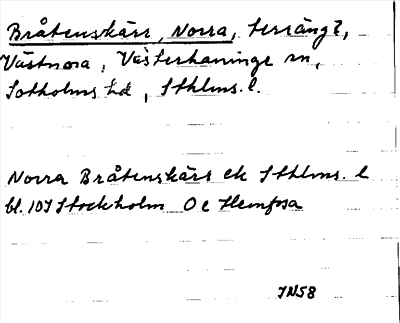 Bråtenskärr, Norra, terräng?,
Västnora, Västerhaninge sn,
Sotholms hd, Sthlms. l.
Norra Bråtenskärs ek Sthlms. l
bl. 107 Stockholm O e Hemfosa
JN58